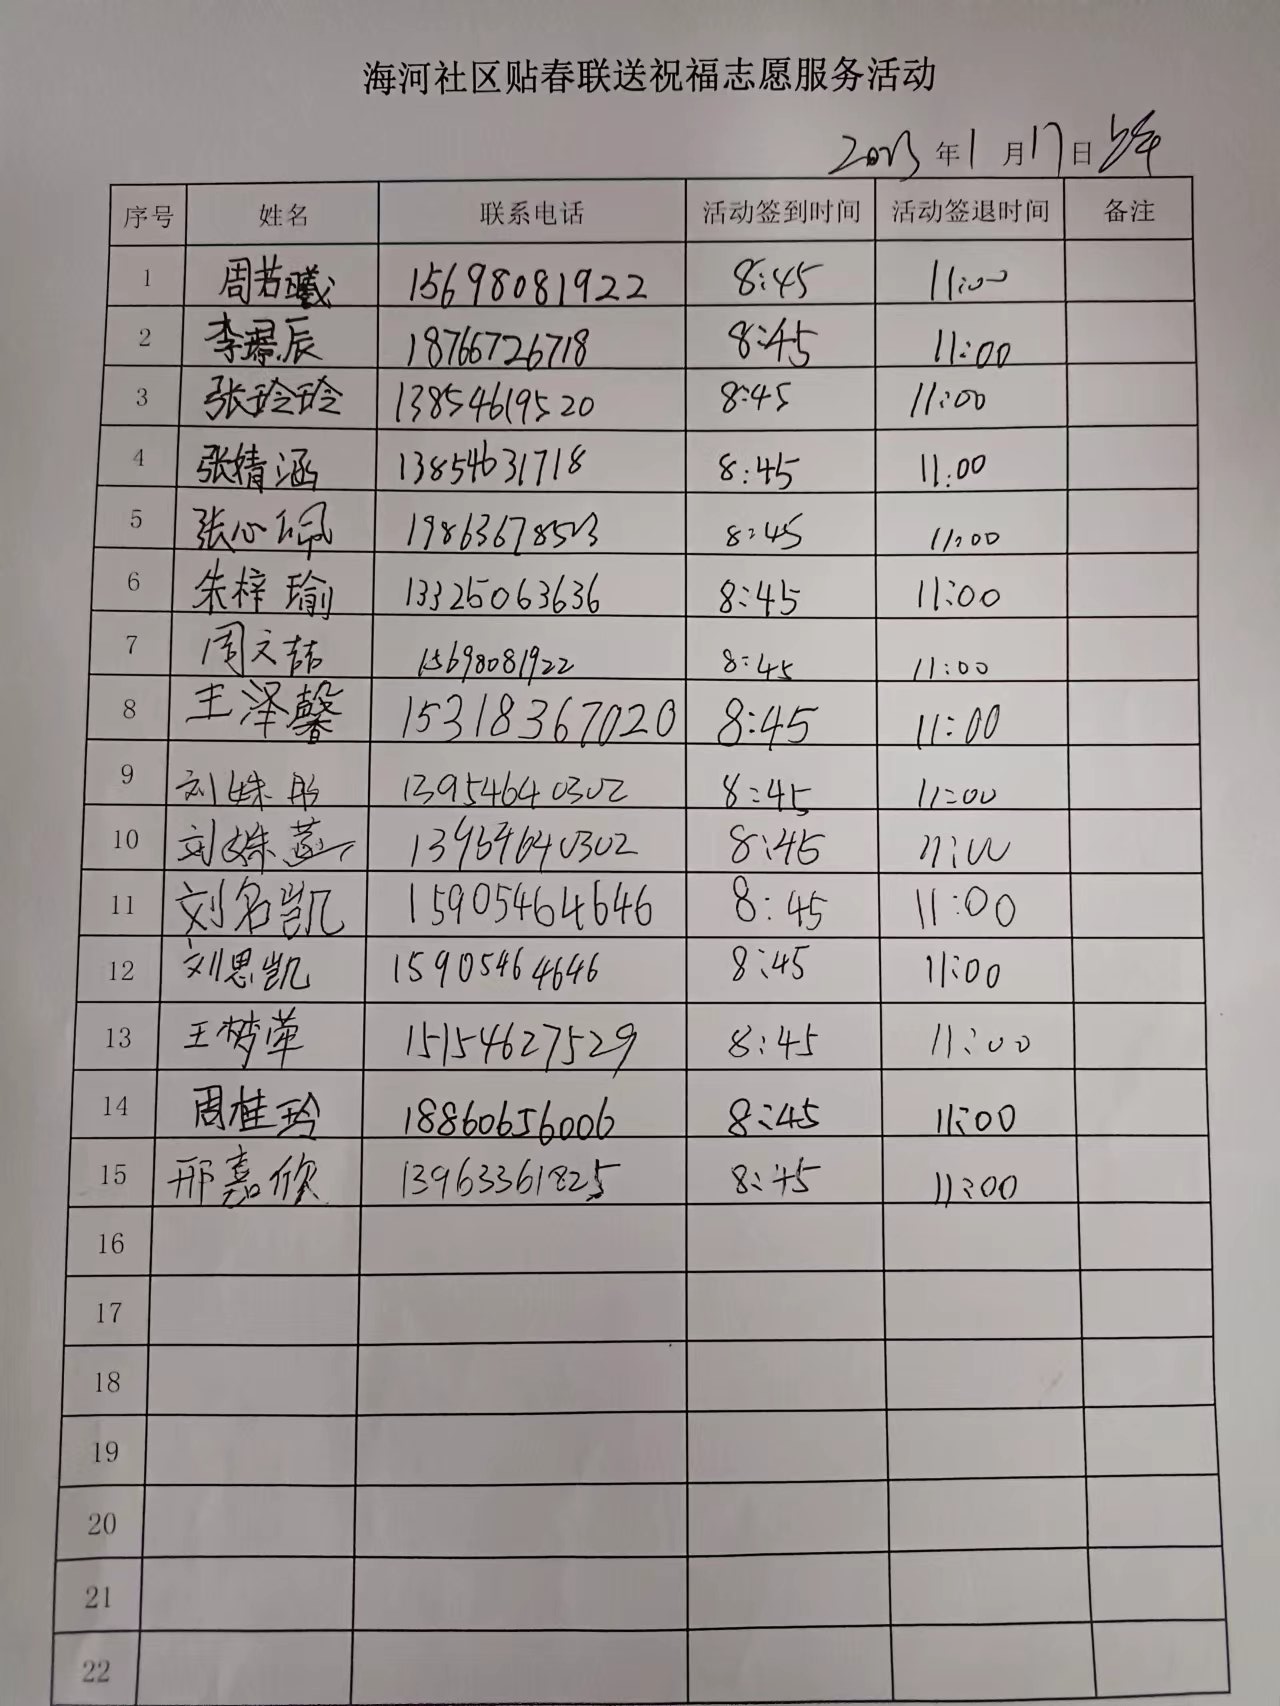 海河社区贴春联送祝福志愿服务活动
2023年1月17日上午
序号 姓名 联系电话 活动签到时间 活动签退时间 备注
1 周若曦 15698081922 8:45 11:00
2 李璟辰 18766726718 8:45 11:00
3 张玲玲 13854619520 8:45 11:00
4 张婧涵 13854631718 8:45 11:00
5 张心佩 19863678503 8:45 11:00
6 朱梓瑜 13325063636 8:45 11:00
7 周文喆 15698081922 8:45 11:00
8 王泽馨 15318367020 8:45 11:00
9 刘姝彤 13954640302 8:45 11:00
10 刘姝 13954640302 8:45 11:00
11 刘名凯 15905464646 8:45 11:00
12 刘思凯 15905464646 8:45 11:00
13 王梦苹 15154627529 8:45 11:00
14 周桂玲 18860656006 8:45 11:00
15 邢嘉欣 13963361825 8:45 11:00
16
17
18
19
20
21
22